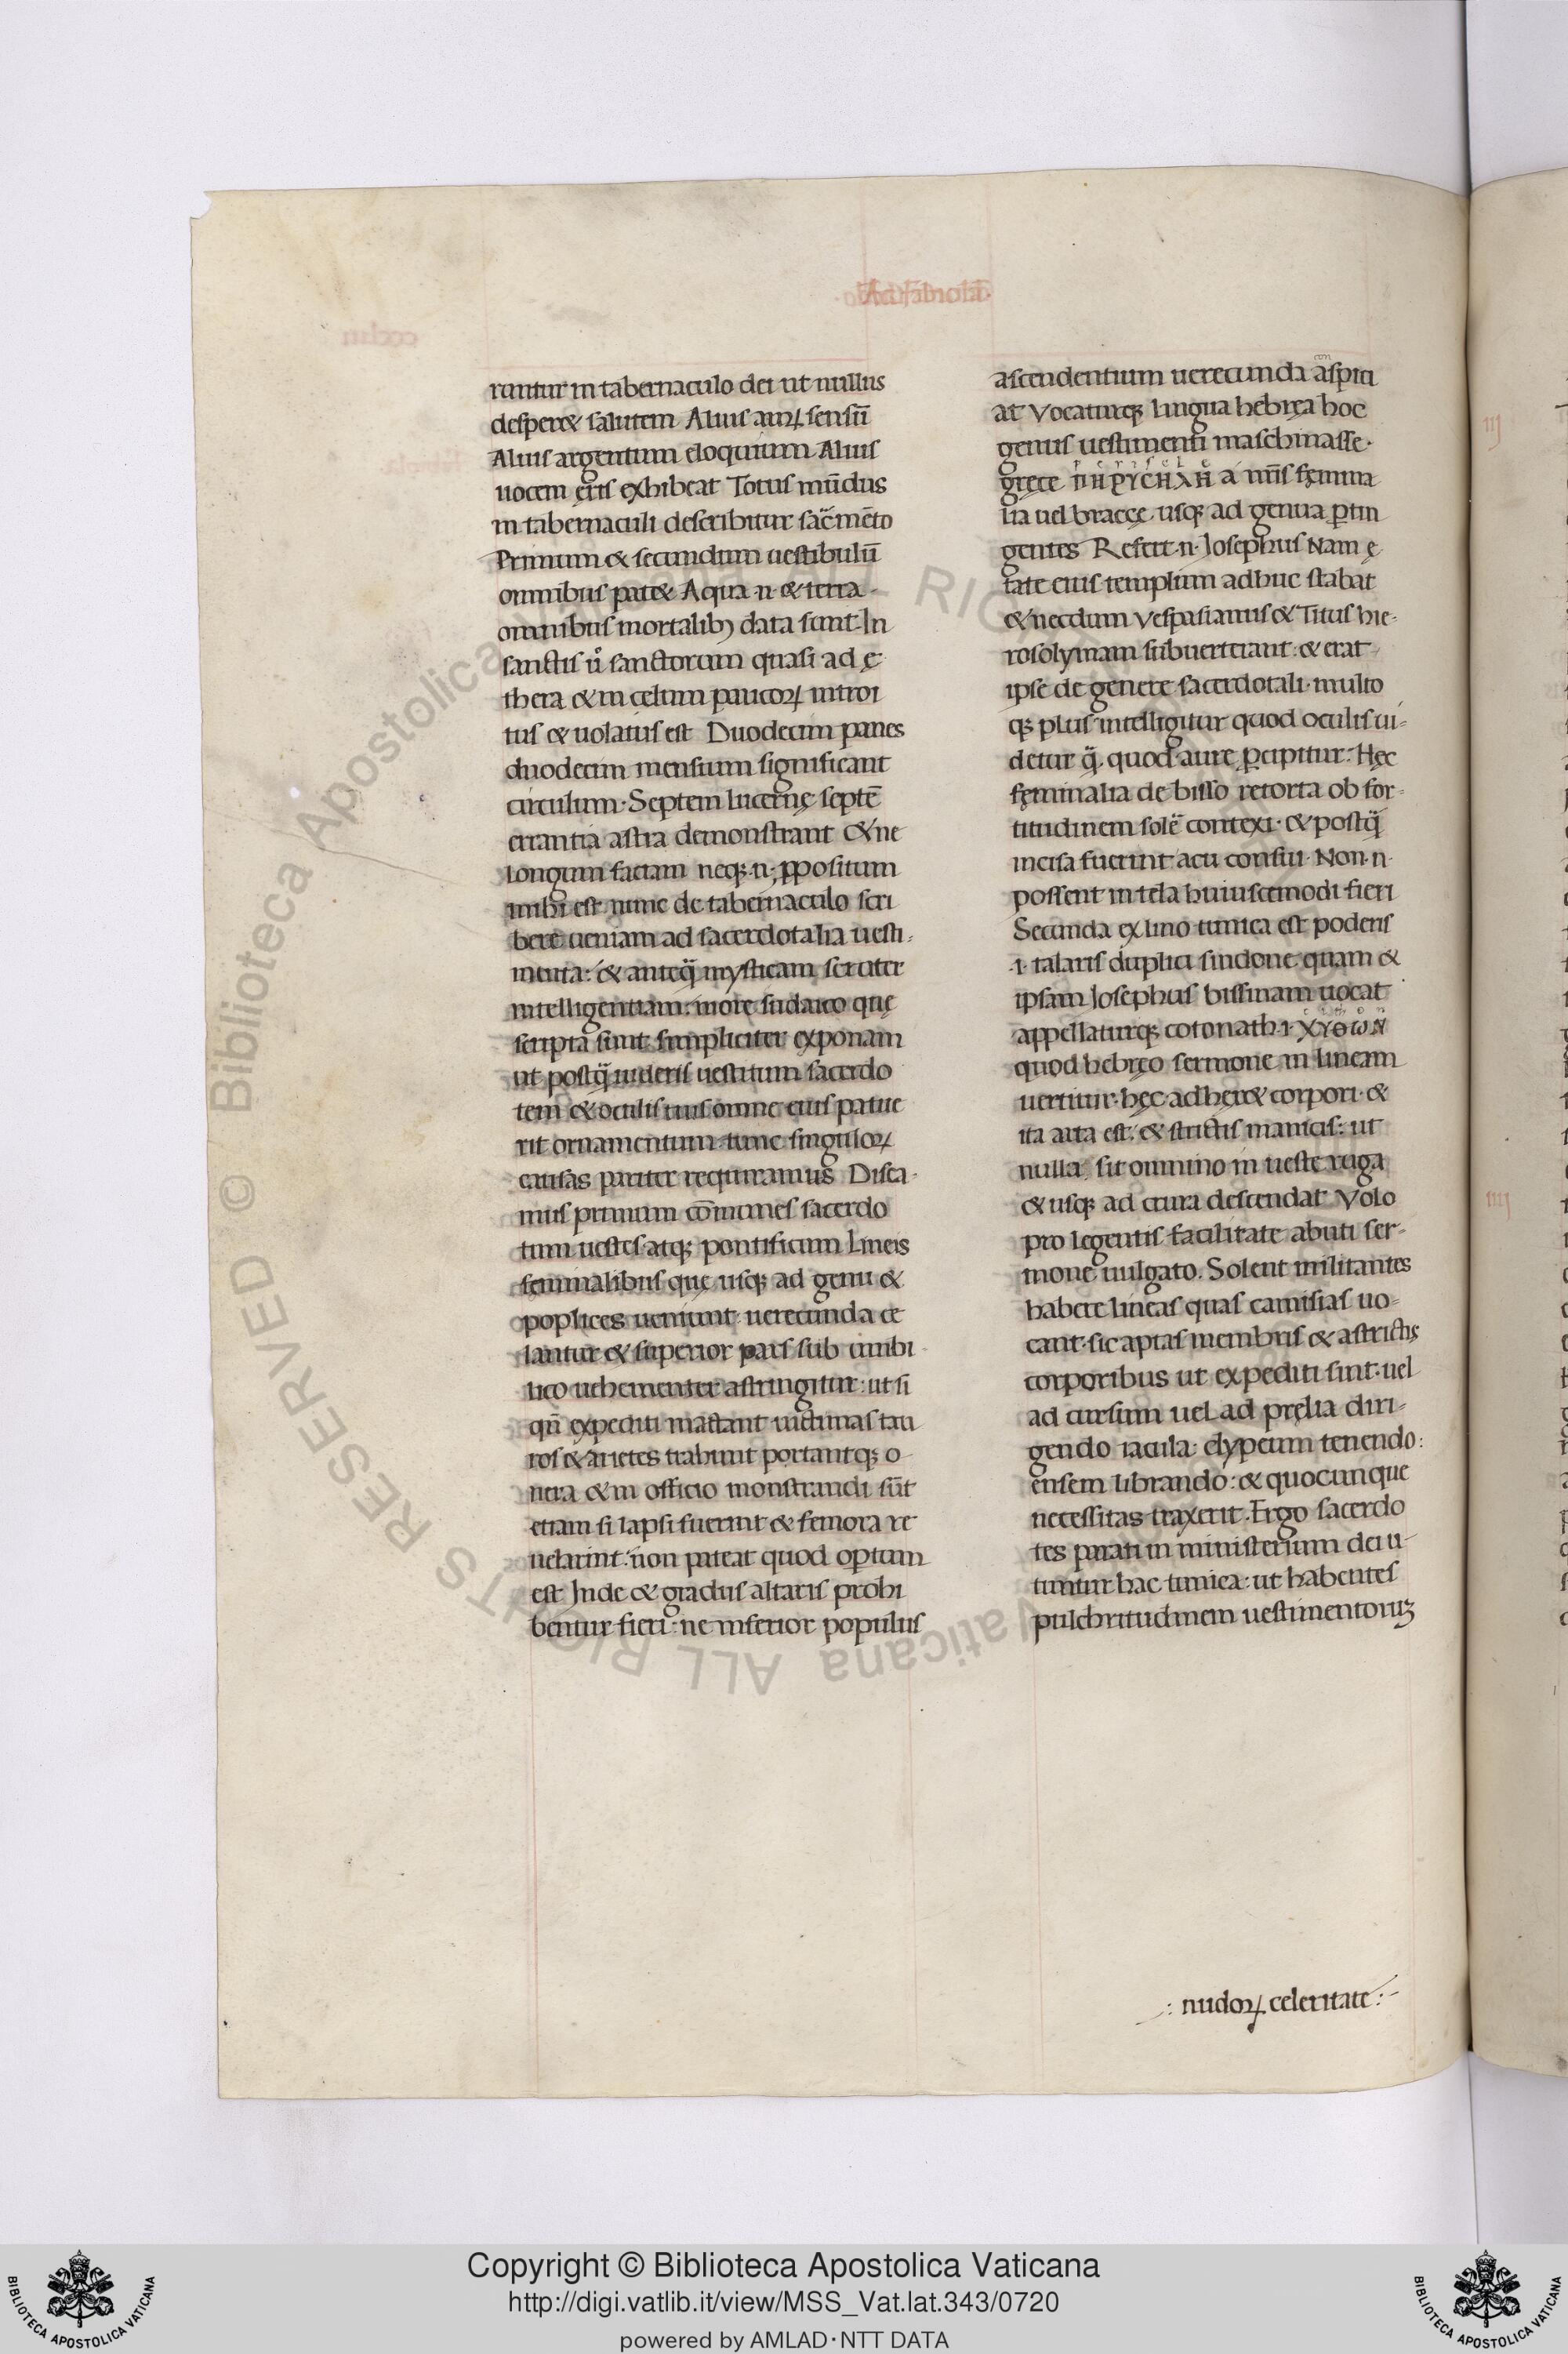 Ad fabiolā.
rantur in tabernaculo dei ut nullus
desperet salutem Alius auroꝝ sensū
Alius argentum eloquium Alius
uocem ęris exhibeat Totus mūdus
in tabernaculi describitur sacͬmēto
Primum & secundum uestibulū
omnibus patet Aqua .n. & terra
omnibus mortalibꝫ data sunt In
sanctis u̓ sanctorum quasi ad ę
thera & in celum paucoꝝ introi
tus & uolatus est Duodecim panes
duodecim mensium significant
circulum. Septem lucernę septē
errantia astra demonstrant & ne
longum faciam neqꝫ .n. ꝓpositum
mihi est nunc de tabernaculo scri
bere ueniam ad sacerdotalia uesti-
menta: & anteq̄ mysticam scruter
intelligentiam: more iudaico quę
scripta sunt simpliciter exponam
ut postq̄ uideris uestitum sacerdo
tem & oculis tuis omne eius patue
rit ornamentum tunc singuloꝝ
causas pariter requiramus Disca-
mus primum cōmunes sacerdo
tum uestes atqꝫ pontificum Lineis
feminalibus quę usqꝫ ad genu &
poplices ueniunt uerecunda ce
lantur & superior pars sub umbi
lico uehementer astringitur: ut si
qn̄ expediti mactant uictimas tau
ros & arietes trahunt portantqꝫ o
nera & in officio monstrandi sūt
etiam si lapsi fuerint & femora re
uelarint: non pateat quod opertum
est Inde & gradus altaris prohi
bentur fieri: ne inferior populus
ascendentium uerecunda aspici
con
at Vocaturqꝫ lingua hebręa hoc
genus uestimenti maschinasse.
gręce ΠΗΡΥСΗΛΗ a nr̄is femina
lia uel braccę. usqꝫ ad genua ꝑtin
gentes Refert .n. Josephus Nam ę
tate eius templum adhuc stabat
& necdum Vespasianus & Titus hie-
rosolymam subuerterant: & erat
ipse de genere sacerdotali. multo
qꝫ plus intelligitur quod oculis ui-
detur q̄ quod aure ꝑcipitur: Hęc
feminalia de bisso retorta ob for-
titudinem solēt contexi. & postq̄
incisa fuerint acu consui. Non .n.
possent in tela huiuscemodi fieri
Secunda ex lino tunica est poderis
.i. talaris duplici sindone. quam &
ipsam Josephus bissinam uocat
appellaturqꝫ cotonath .i. ΧΥΘωΝ
quod hebręo sermone in lineam
uertitur. hęc adheret corpori. &
ita arta est: & strictis manicis: ut
nulla sit omnino in ueste ruga
& usqꝫ ad crura descendat Volo
pro legentis facilitate abuti ser-
mone uulgato. Solent militantes
habere lineas quas camisias uo-
cant. sic aptas membris & astrictis
corporibus ut expediti sint. uel
ad cursum uel ad pręlia diri-
gendo iacula: clypeum tenendo:
ensem librando: & quocunque
necessitas traxerit. Ergo sacerdo
tes parati in ministerium dei u-
tuntur hac tunica: ut habentes
pulchritudinem uestimentorum
: nudoꝝ celeritate :
Copyright © Biblioteca Apostolica Vaticana
http://digi.vatlib.it/view/MSS_Vat.lat.343/0720
powered by AMLAD·NTT DATA
BIBLIOTECA APOSTOLICA VATICANA
BIBLIOTECA APOSTOLICA VATICANA
© Biblioteca Apostolica Vaticana ALL RIGHTS RESERVED